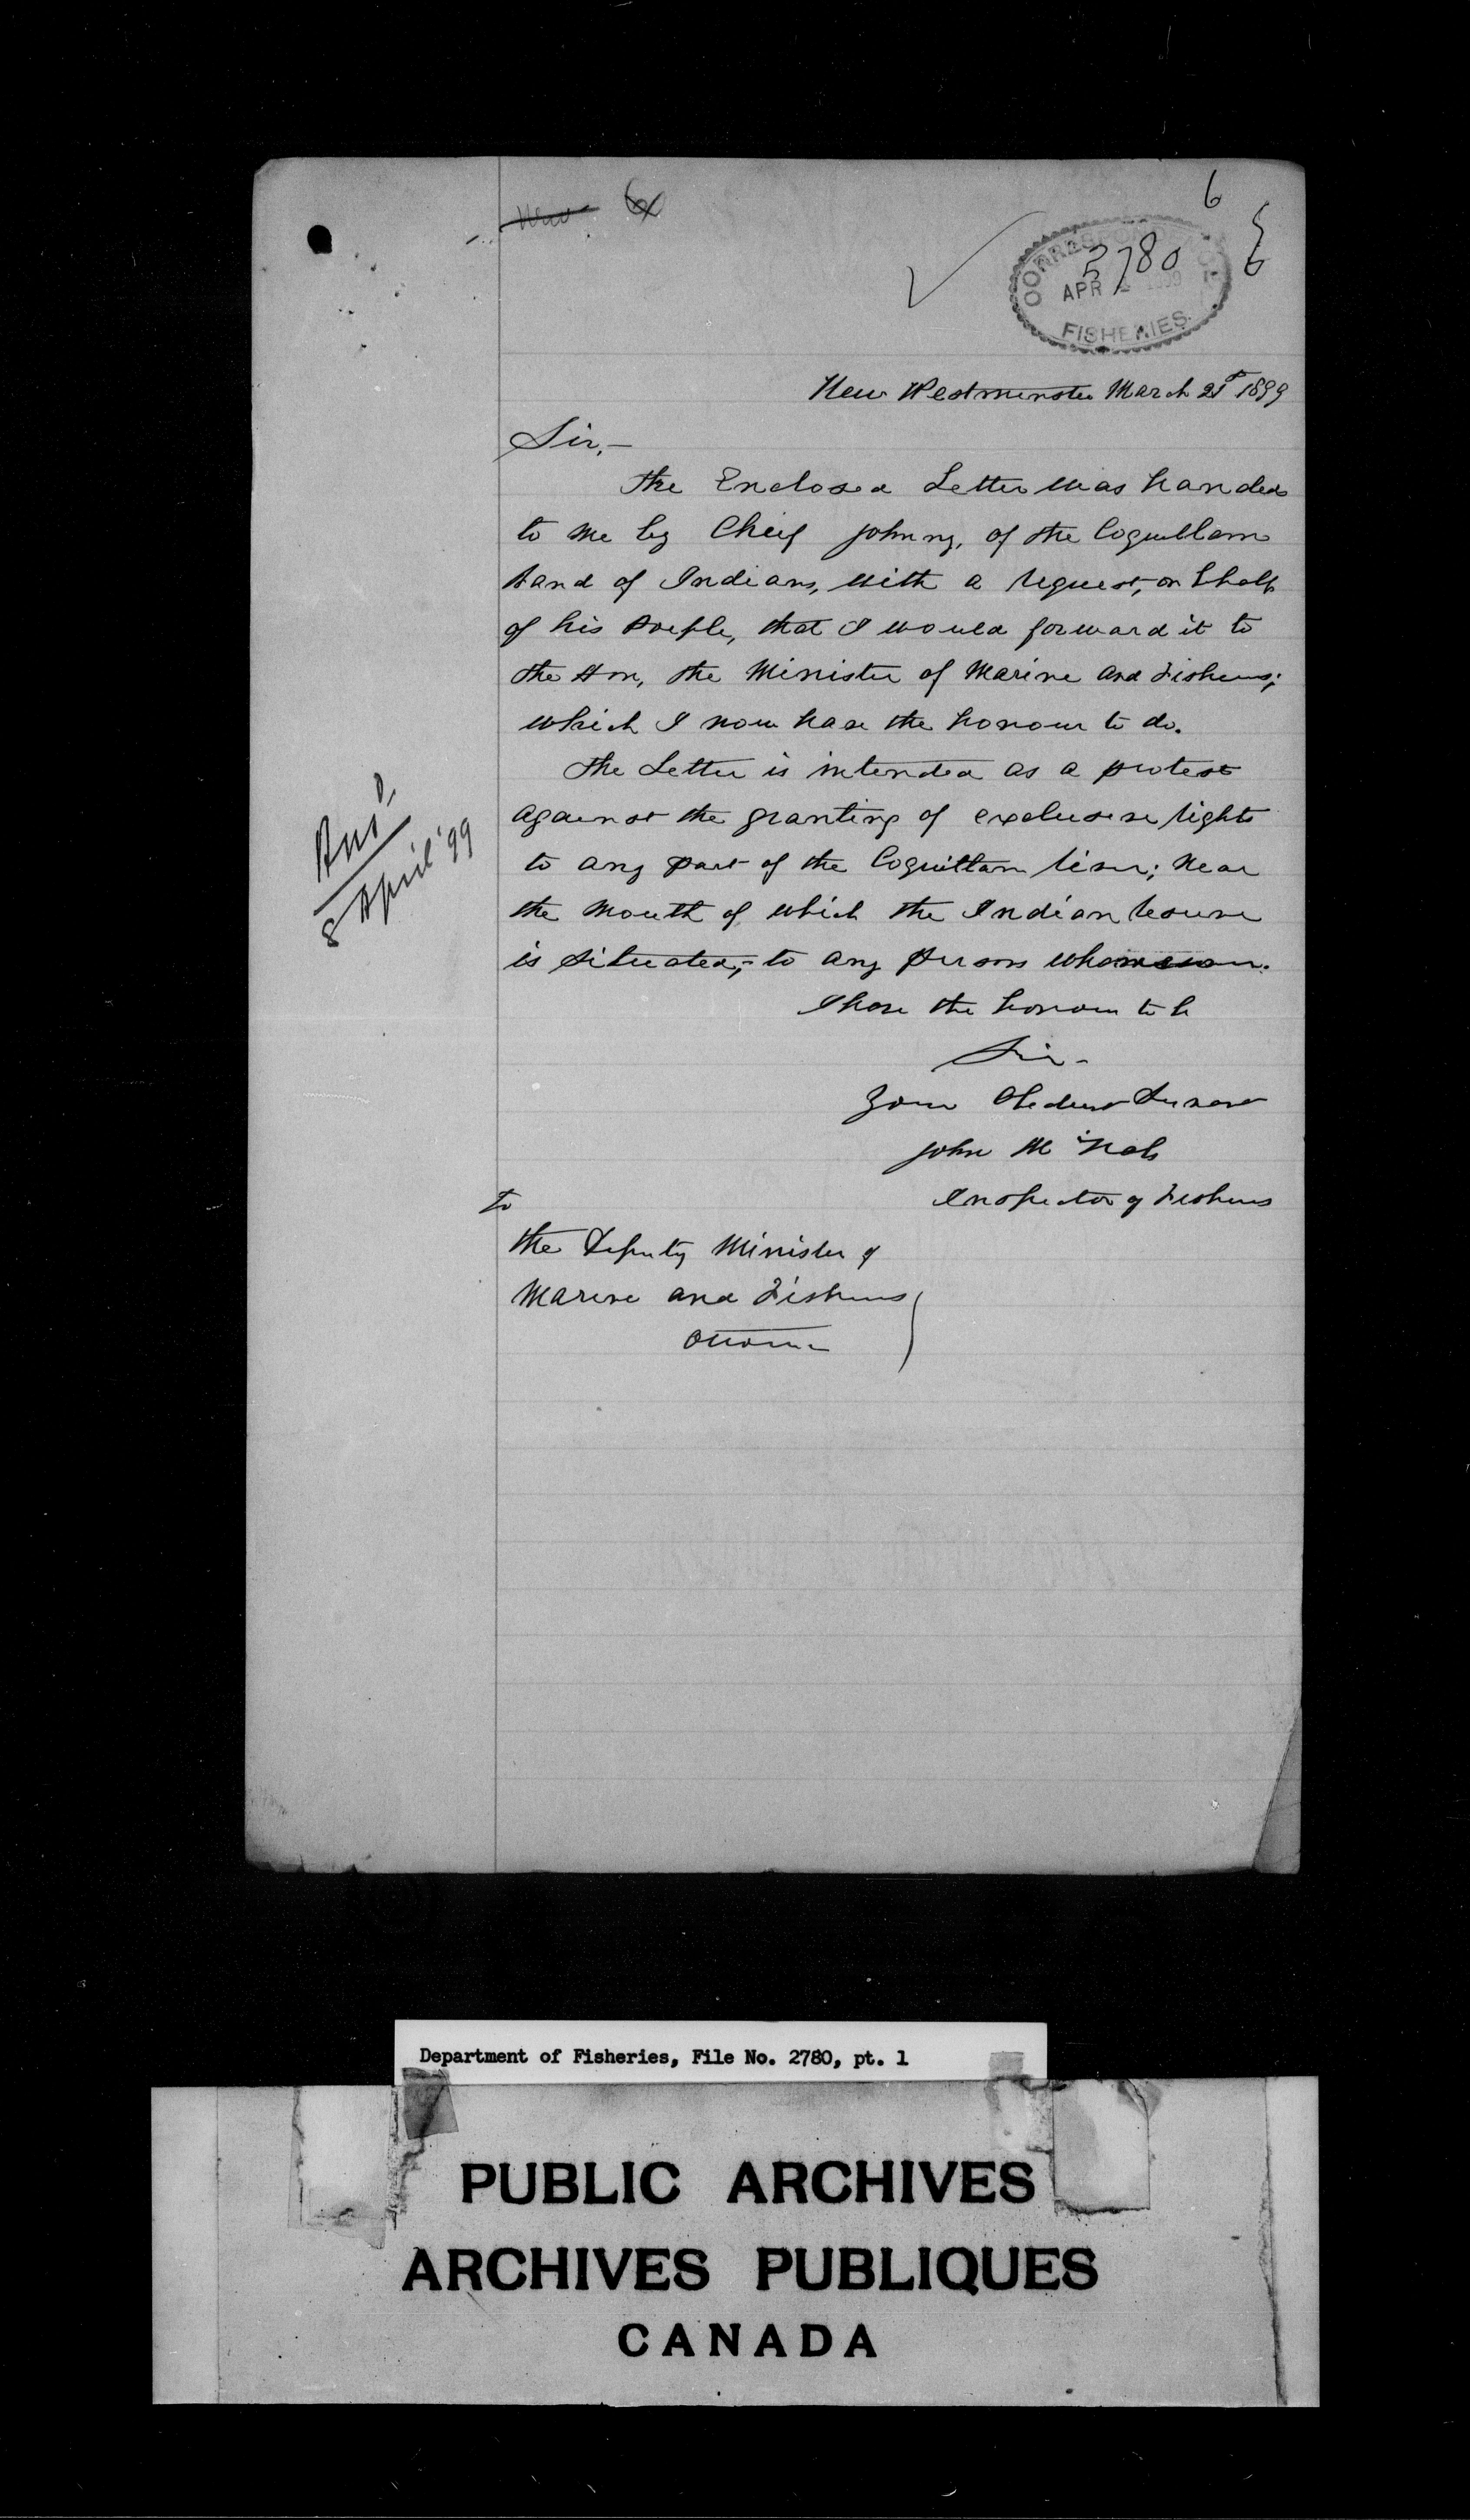 6
6
2780
CORRESPONDENCE
APR 1899
FISHERIES.
6
New Westminster March 21st 1899
Sir,—
The Enclosed Letter was handed
to me by Chief Johnny, of the Coquitlam
band of Indians, with a request, on bhalf
of his People, that I would forward it to
the Hon, the Minister of Marine and Fisheries;
which I now have the honour to do.
The Letter is intended as a protest
against the granting of exclusive rights
to any part of the Coquitlam river; near
the mouth of which the Indian reserve
is situated,- to any persons whomsoever.
I have the honour to be
Sir-
Your Obedient Servant
John McNab
Inspector of Fisheries
Ansd,
8 April '99
To
the Deputy Minister of
Marine and Fisheries
Ottawa
Department of Fisheries, File No. 2780, pt. 1
PUBLIC ARCHIVES
ARCHIVES PUBLIQUES
CANADA